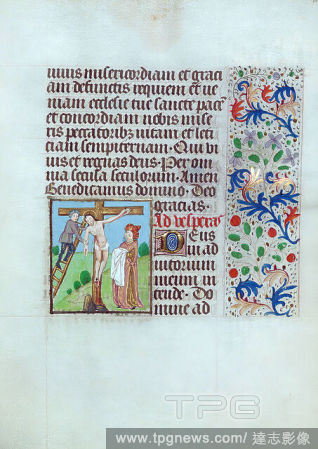 iuuis misericordiam et graci
am defunctis requiem et ue
niam ecclesie tue sancte pacē
et concordiam nobis mise
ris peccatoribꝫ uitam et leti
ciam sempiternam. Qui vi
uis et regnas deus. Per om
nia secula seculorum. Amen
Benedicamus domino. Deo
gracias.
Ad vesperas
Deus
in ad
iutorium
meum in
tende. Do
mine ad
TPG
www.tpgnews.com/ 達志影像